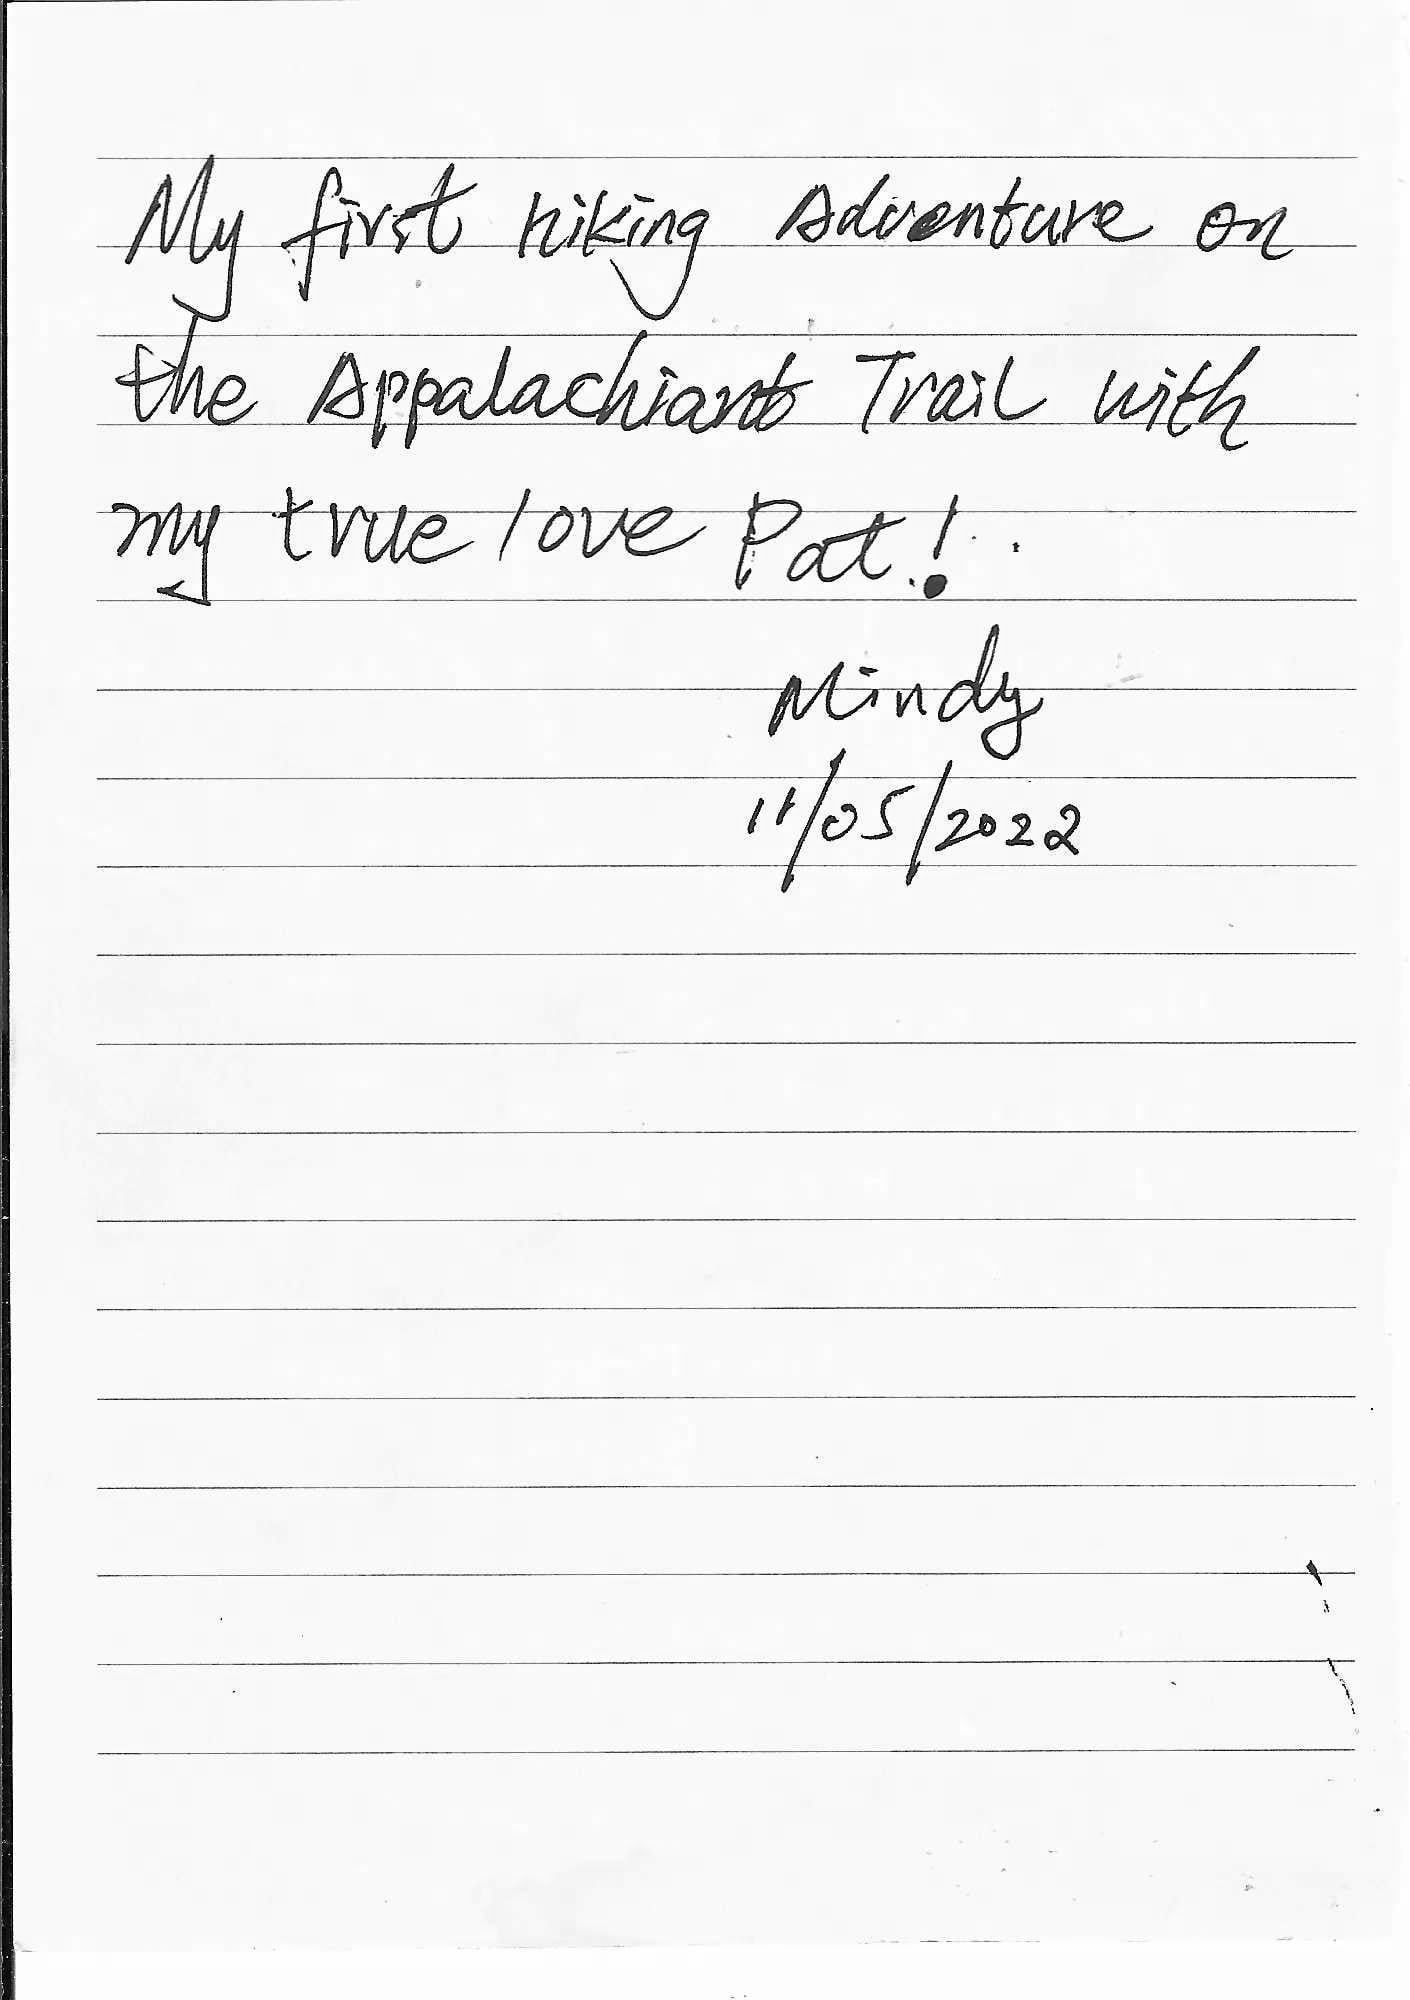 My first hiking Adventure on
the Appalachian Trail with
my true love Pat!
Mindy
11/05/2022